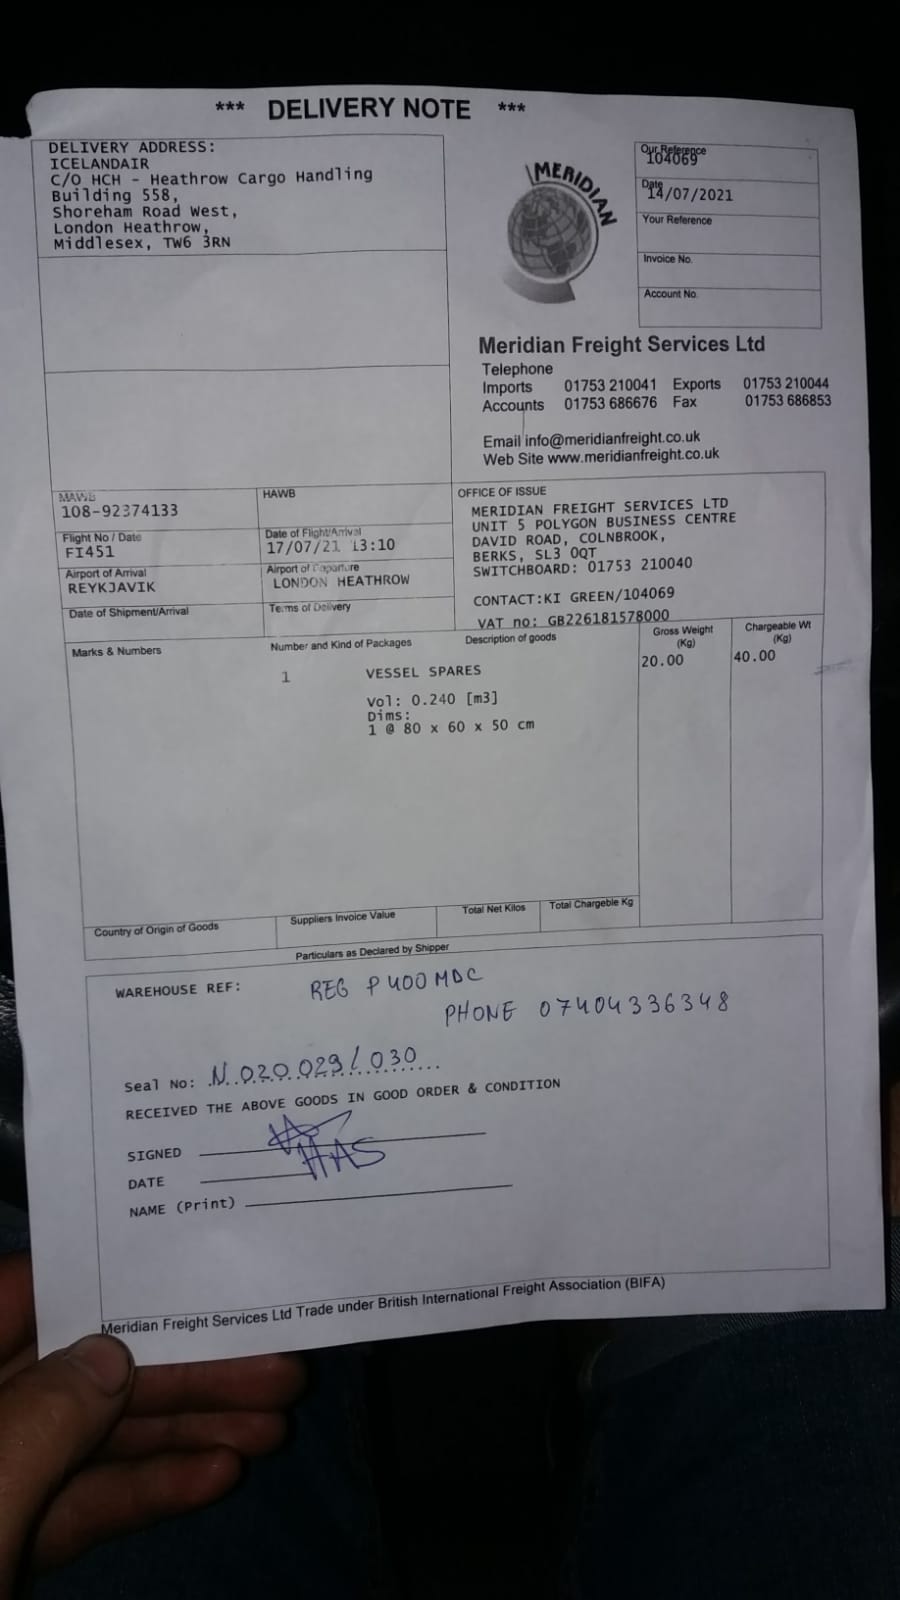 *** DELIVERY NOTE ***
DELIVERY ADDRESS:
ICELANDAIR
C/O HCH - Heathrow Cargo Handling
Building 558,
Shoreham Road West,
London Heathrow,
Middlesex, TW6 3RN
MERIDIAN
Our Reference
104069
Date
14/07/2021
Your Reference
Invoice No.
Account No.
Meridian Freight Services Ltd
Telephone
Imports 01753 210041 Exports 01753 210044
Accounts 01753 686676 Fax 01753 686853
Email info@meridianfreight.co.uk
Web Site www.meridianfreight.co.uk
MAWB
108-92374133
HAWB
Flight No / Date
FI451
Date of Flight/Arrival
17/07/21 13:10
Airport of Arrival
REYKJAVIK
Airport of Departure
LONDON HEATHROW
Date of Shipment/Arrival
Terms of Delivery
OFFICE OF ISSUE
MERIDIAN FREIGHT SERVICES LTD
UNIT 5 POLYGON BUSINESS CENTRE
DAVID ROAD, COLNBROOK,
BERKS, SL3 0QT
SWITCHBOARD: 01753 210040
CONTACT:KI GREEN/104069
VAT no: GB226181578000
Marks & Numbers
Number and Kind of Packages
Description of goods
Gross Weight
(Kg)
Chargeable Wt
(Kg)
1 VESSEL SPARES
20.00
40.00
Vol: 0.240 [m3]
Dims:
1 @ 80 x 60 x 50 cm
Country of Origin of Goods
Suppliers Invoice Value
Total Net Kilos
Total Chargeble Kg
Particulars as Declared by Shipper
WAREHOUSE REF: REG P400MDC
PHONE 07404336348
Seal No: N.020.029/030
RECEIVED THE ABOVE GOODS IN GOOD ORDER & CONDITION
SIGNED
DATE
NAME (Print)
Meridian Freight Services Ltd Trade under British International Freight Association (BIFA)